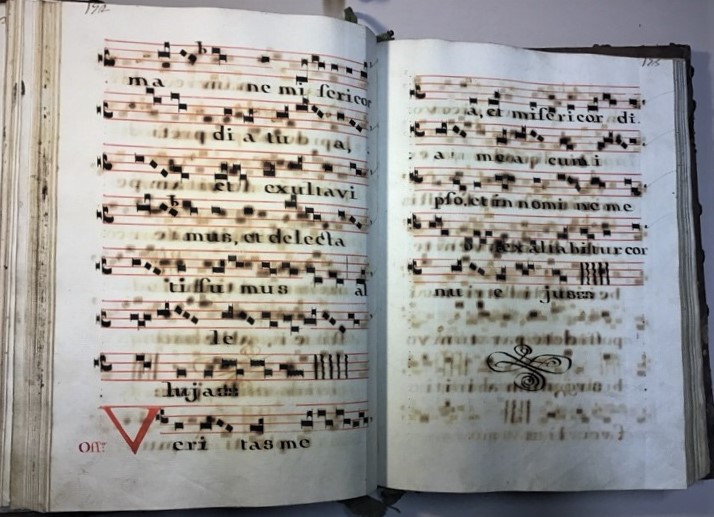 172
ma ne mi sericor
di a tu a,
et exultavi
mus, et delecta
ti su mus al
le
luja
Off. Veri tas me
a, et misericor di
a mea cum i
pso, et in nomine me
o exaltabitur cor
nu e jus